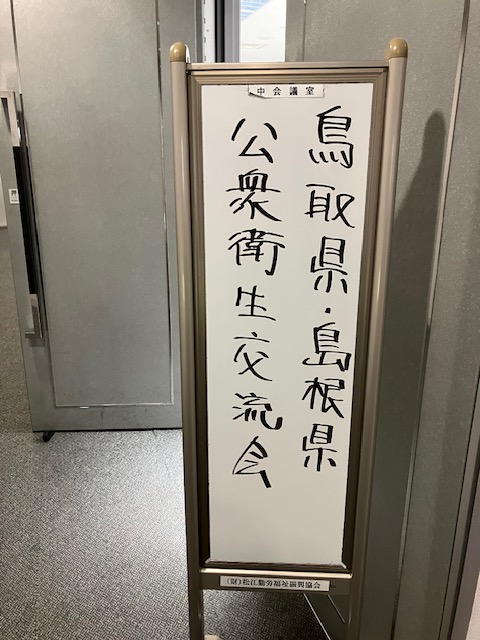 中会議室
鳥取県・島根県
公衆衛生交流会
(財)松江勤労福祉振興協会